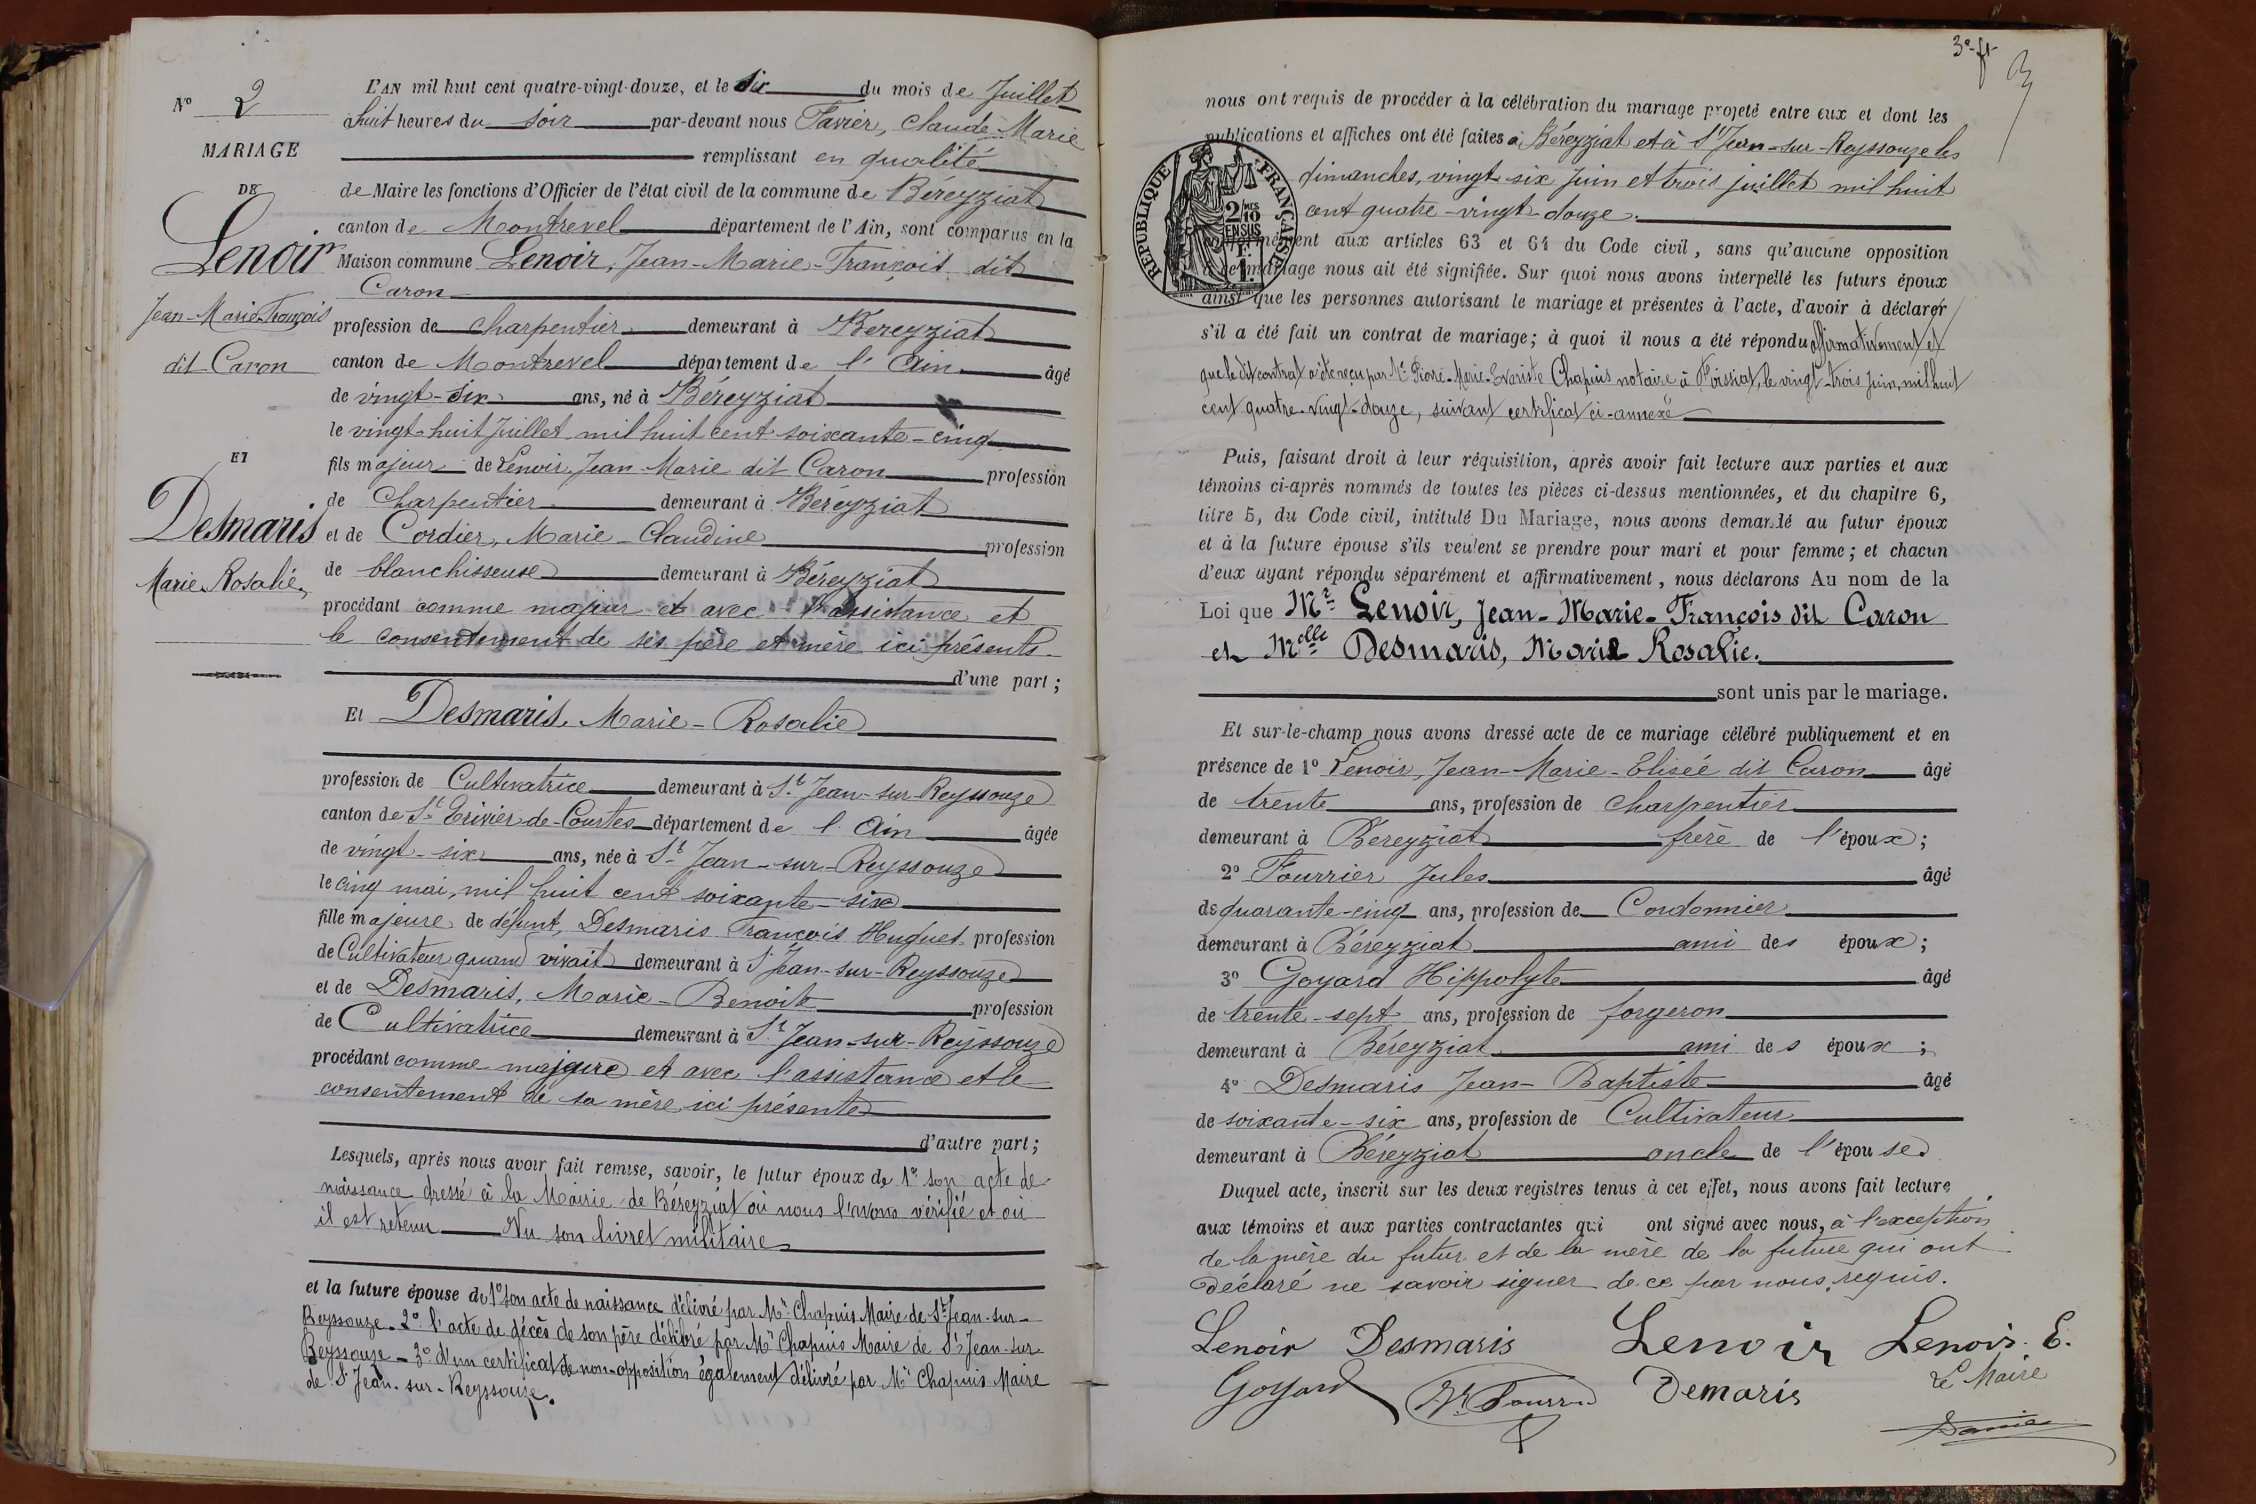 N° 2
MARIAGE
DE
Lenoir
Jean-Marie-François
dit Caron
ET
Desmaris
Marie Rosalie
L'AN mil huit cent quatre-vingt-douze, et le six du mois de Juillet
à huit heures du soir par-devant nous Favier, Claude-Marie
remplissant en qualité
de Maire les fonctions d'Officier de l'état civil de la commune de Béreyziat
canton de Montrevel département de l'Ain, sont comparus en la
Maison commune Lenoir, Jean-Marie-François dit
Caron
profession de charpentier demeurant à Béreyziat
canton de Montrevel département de l'Ain âgé
de vingt-six ans, né à Béreyziat
le vingt-huit Juillet mil huit cent soixante-cinq
fils majeur de Lenoir Jean Marie dit Caron profession
de Charpentier demeurant à Béreyziat
et de Cordier, Marie-Claudine profession
de blanchisseuse demeurant à Béreyziat
procédant comme majeur et avec l'assistance et
le consentement de ses père et mère ici présents
d'une part ;
Et Desmaris, Marie-Rosalie
profession de Cultivatrice demeurant à St Jean-sur-Reyssouze
canton de St Trivier-de-Courtes département de l'Ain âgée
de vingt-six ans, née à St Jean-sur-Reyssouze
le cinq mai, mil huit cent soixante-six
fille majeure de défunt, Desmaris François Huguet profession
de Cultivateur quand vivait demeurant à St Jean-sur-Reyssouze
et de Desmaris, Marie-Benoite profession
de Cultivatrice demeurant à St Jean-sur-Reyssouze
procédant comme majeure et avec l'assistance et le
consentement de sa mère ici présente
d'autre part ;
Lesquels, après nous avoir fait remise, savoir, le futur époux de 1° son acte de
naissance dressé à la Mairie de Béreyziat où nous l'avons vérifié et où
il est retenu Vu son livret militaire
et la future épouse de 1° son acte de naissance délivré par Mr Chapuis Maire de St Jean-sur-
Reyssouze - 2° l'acte de décès de son père délivré par Mr Chapuis Maire de St Jean-sur-
Reyssouze - 3° d'un certificat de non-opposition également délivré par Mr Chapuis Maire
de St Jean-sur-Reyssouze.
3e ft
3
nous ont requis de procéder à la célébration du mariage projeté entre eux et dont les
publications et affiches ont été faites à Béreyziat et à St Jean-sur-Reyssouze les
dimanches, vingt-six Juin et trois juillet mil huit
cent quatre-vingt-douze.
RÉPUBLIQUE FRANÇAISE
2/10
EN SUS
1 F.
conformément aux articles 63 et 64 du Code civil, sans qu'aucune opposition
à ce mariage nous ait été signifiée. Sur quoi nous avons interpellé les futurs époux
ainsi que les personnes autorisant le mariage et présentes à l'acte, d'avoir à déclarer
s'il a été fait un contrat de mariage ; à quoi il nous a été répondu affirmativement et
que le dit contrat a été reçu par Me Pierre-Marie-Evariste Chapuis notaire à Foissiat, le vingt-trois Juin, mil huit
cent quatre-vingt-douze, suivant certificat ci-annexé
Puis, faisant droit à leur réquisition, après avoir fait lecture aux parties et aux
témoins ci-après nommés de toutes les pièces ci-dessus mentionnées, et du chapitre 6,
titre 5, du Code civil, intitulé Du Mariage, nous avons demandé au futur époux
et à la future épouse s'ils veulent se prendre pour mari et pour femme ; et chacun
d'eux ayant répondu séparément et affirmativement, nous déclarons Au nom de la
Loi que Mr Lenoir, Jean-Marie-François dit Caron
et Melle Desmaris, Marie Rosalie.
sont unis par le mariage.
Et sur-le-champ nous avons dressé acte de ce mariage célébré publiquement et en
présence de 1° Lenoir, Jean-Marie-Elisée dit Caron âgé
de trente ans, profession de charpentier
demeurant à Béreyziat frère de l'époux ;
2° Fourrier Jules âgé
de quarante-cinq ans, profession de Cordonnier
demeurant à Béreyziat ami des époux ;
3° Goyard Hippolyte âgé
de trente-sept ans, profession de forgeron
demeurant à Béreyziat ami des époux ;
4° Desmaris Jean-Baptiste âgé
de soixante-six ans, profession de Cultivateur
demeurant à Béreyziat oncle de l'épouse.
Duquel acte, inscrit sur les deux registres tenus à cet effet, nous avons fait lecture
aux témoins et aux parties contractantes qui ont signé avec nous, à l'exception
de la mère du futur et de la mère de la future qui ont
déclaré ne savoir signer de ce par nous requis.
Lenoir Desmaris Lenoir Lenoir. E.
Goyard Fourrier Demaris Le Maire
Favier